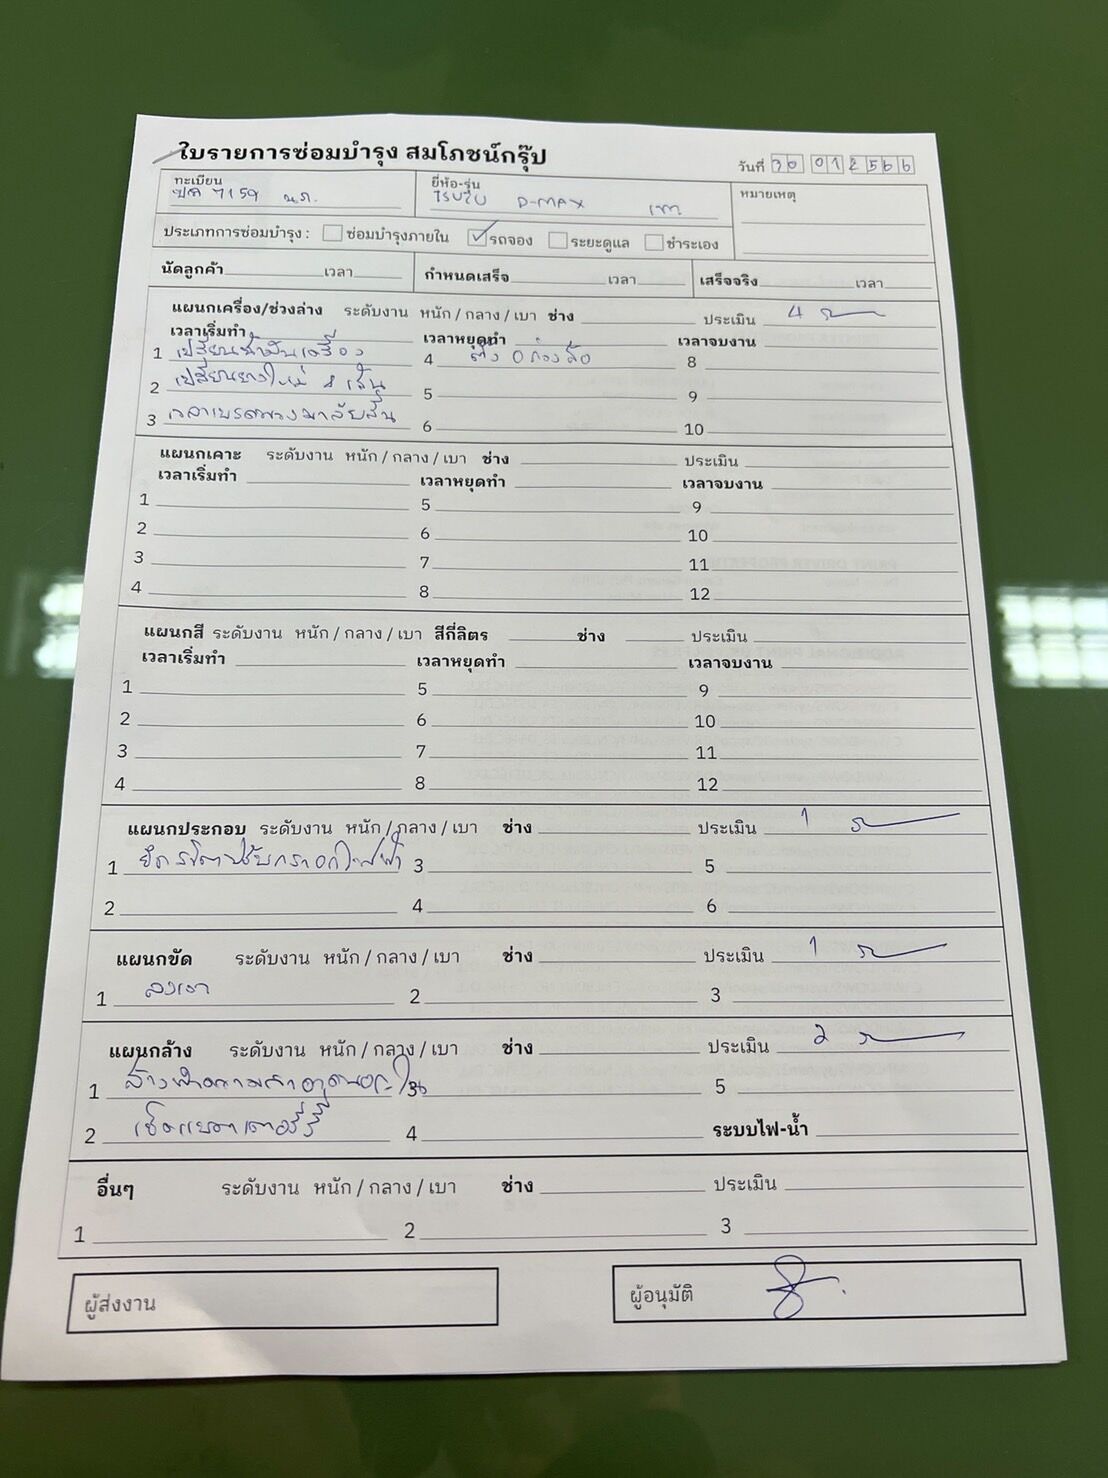 ใบรายการซ่อมบำรุง สมโภชน์กรุ๊ป
วันที่ 30 01 2566
ทะเบียน
7159
ยี่ห้อ-รุ่น
D-MAX เทา
หมายเหตุ
ประเภทการซ่อมบำรุง : ซ่อมบำรุงภายใน รถจอง ระยะดูแล ชำระเอง
นัดลูกค้า เวลา กำหนดเสร็จ เวลา เสร็จจริง เวลา
แผนกเครื่อง/ช่วงล่าง ระดับงาน หนัก / กลาง / เบา ช่าง ประเมิน 4
เวลาเริ่มทำ เวลาหยุดทำ เวลาจบงาน
1 เปลี่ยนน้ำมันเครื่อง 4 ตั้งศูนย์ถ่วงล้อ 8
2 เปลี่ยนยางใหม่ 4 เส้น 5 9
3 เวลาเบรคพวงมาลัยสั่น 6 10
แผนกเคาะ ระดับงาน หนัก / กลาง / เบา ช่าง ประเมิน
เวลาเริ่มทำ เวลาหยุดทำ เวลาจบงาน
1 5 9
2 6 10
3 7 11
4 8 12
แผนกสี ระดับงาน หนัก / กลาง / เบา สีกี่ลิตร ช่าง ประเมิน
เวลาเริ่มทำ เวลาหยุดทำ เวลาจบงาน
1 5 9
2 6 10
3 7 11
4 8 12
แผนกประกอบ ระดับงาน หนัก / กลาง / เบา ช่าง ประเมิน 1
1 3 5
2 4 6
แผนกขัด ระดับงาน หนัก / กลาง / เบา ช่าง ประเมิน 1
1 ลงเงา 2 3
แผนกล้าง ระดับงาน หนัก / กลาง / เบา ช่าง ประเมิน 2
1 ล้างทำความสะอาด 3 5
2 เช็คแบตเตอรี่ 4 ระบบไฟ-น้ำ
อื่นๆ ระดับงาน หนัก / กลาง / เบา ช่าง ประเมิน
1 2 3
ผู้ส่งงาน ผู้อนุมัติ